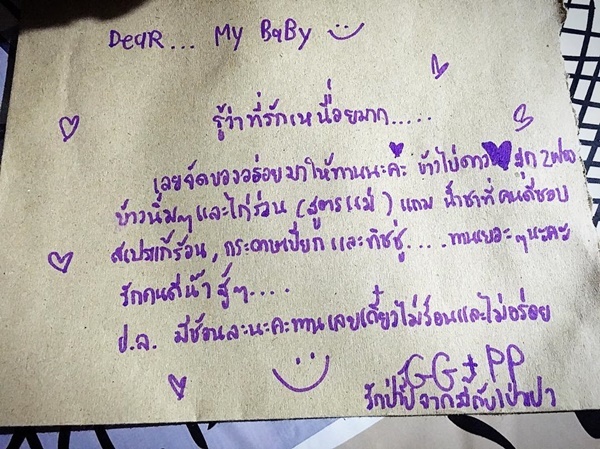 DeaR... My BaBy
รู้ว่าที่รักเหนื่อยมาก.....
เลยจัดของอร่อยมาให้ทานนะค่ะ ข้าวไข่ดาว สุก 2ฟอง
ข้าวนิ่มๆและไก่ร่อน (สูตรแม่) แถม น้ำชาที่คนดีชอบ
สเปรแก้ร้อน, กระดาษเปียก และทิชชู่.... ทานเยอะๆนะคะ
รักคนดีน้า สู้ๆ....
ป.ล. มีช้อนละนะคะทานเลยเดี๋ยวไม่ร้อนและไม่อร่อย
GG+PP